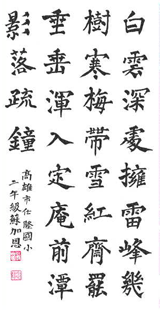 白雲深處擁雷峰幾
樹寒梅帶雪紅齋罷
垂垂渾入定庵前潭
影落疏鐘
高雄市仕隆國小
三年級蘇加恩